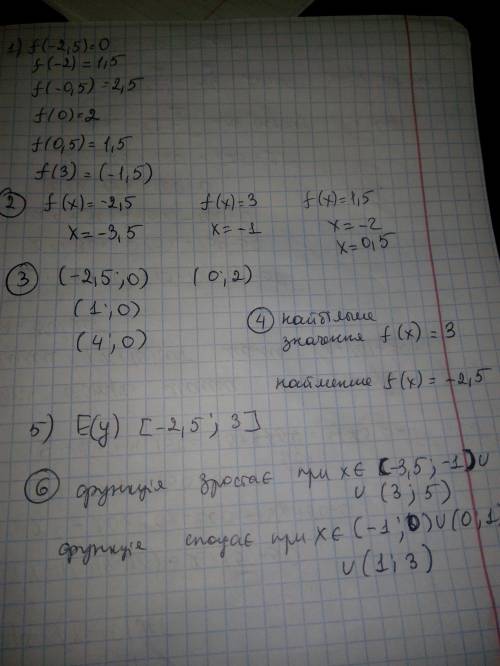 1) f(-2,5)=0
f(-2)=1,5
f(-0,5)=2,5
f(0)=2
f(0,5)=1,5
f(3)=(-1,5)
2 f(x)=-2,5 f(x)=3 f(x)=1,5
x=-3,5 x=-1 x=-2
x=0,5
3 (-2,5;0) (0;2)
(1;0)
(4;0)
4 найбільше
значення f(x)=3
найменше f(x)=-2,5
5) E(y) [-2,5; 3]
6 функція зростає при x∈ [-3,5; -1)∪
∪ (3; 5)
функція спадає при x∈ (-1; 0)∪(0; 1)
∪(1; 3)